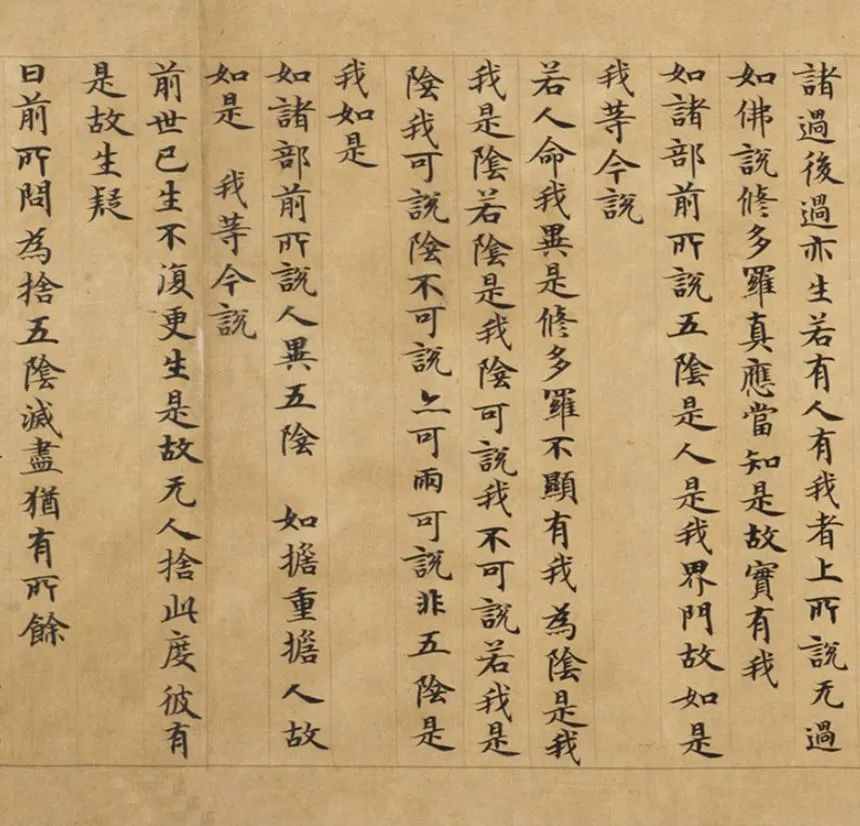 諸過後過亦生若有人有我者上所說无過
如佛說修多羅真應當知是故實有我
如諸部前所說五陰是人是我界門故如是
我等今說
若人命我異是修多羅不顯有我為陰是我
我是陰若陰是我陰可說我不可說若我是
陰我可說陰不可說亦可兩可說非五陰是
我如是
如諸部前所說人異五陰 如擔重擔人故
如是 我等今說
前世已生不復更生是故无人捨此度彼有
是故生疑
曰前所問為捨五陰滅盡猶有所餘